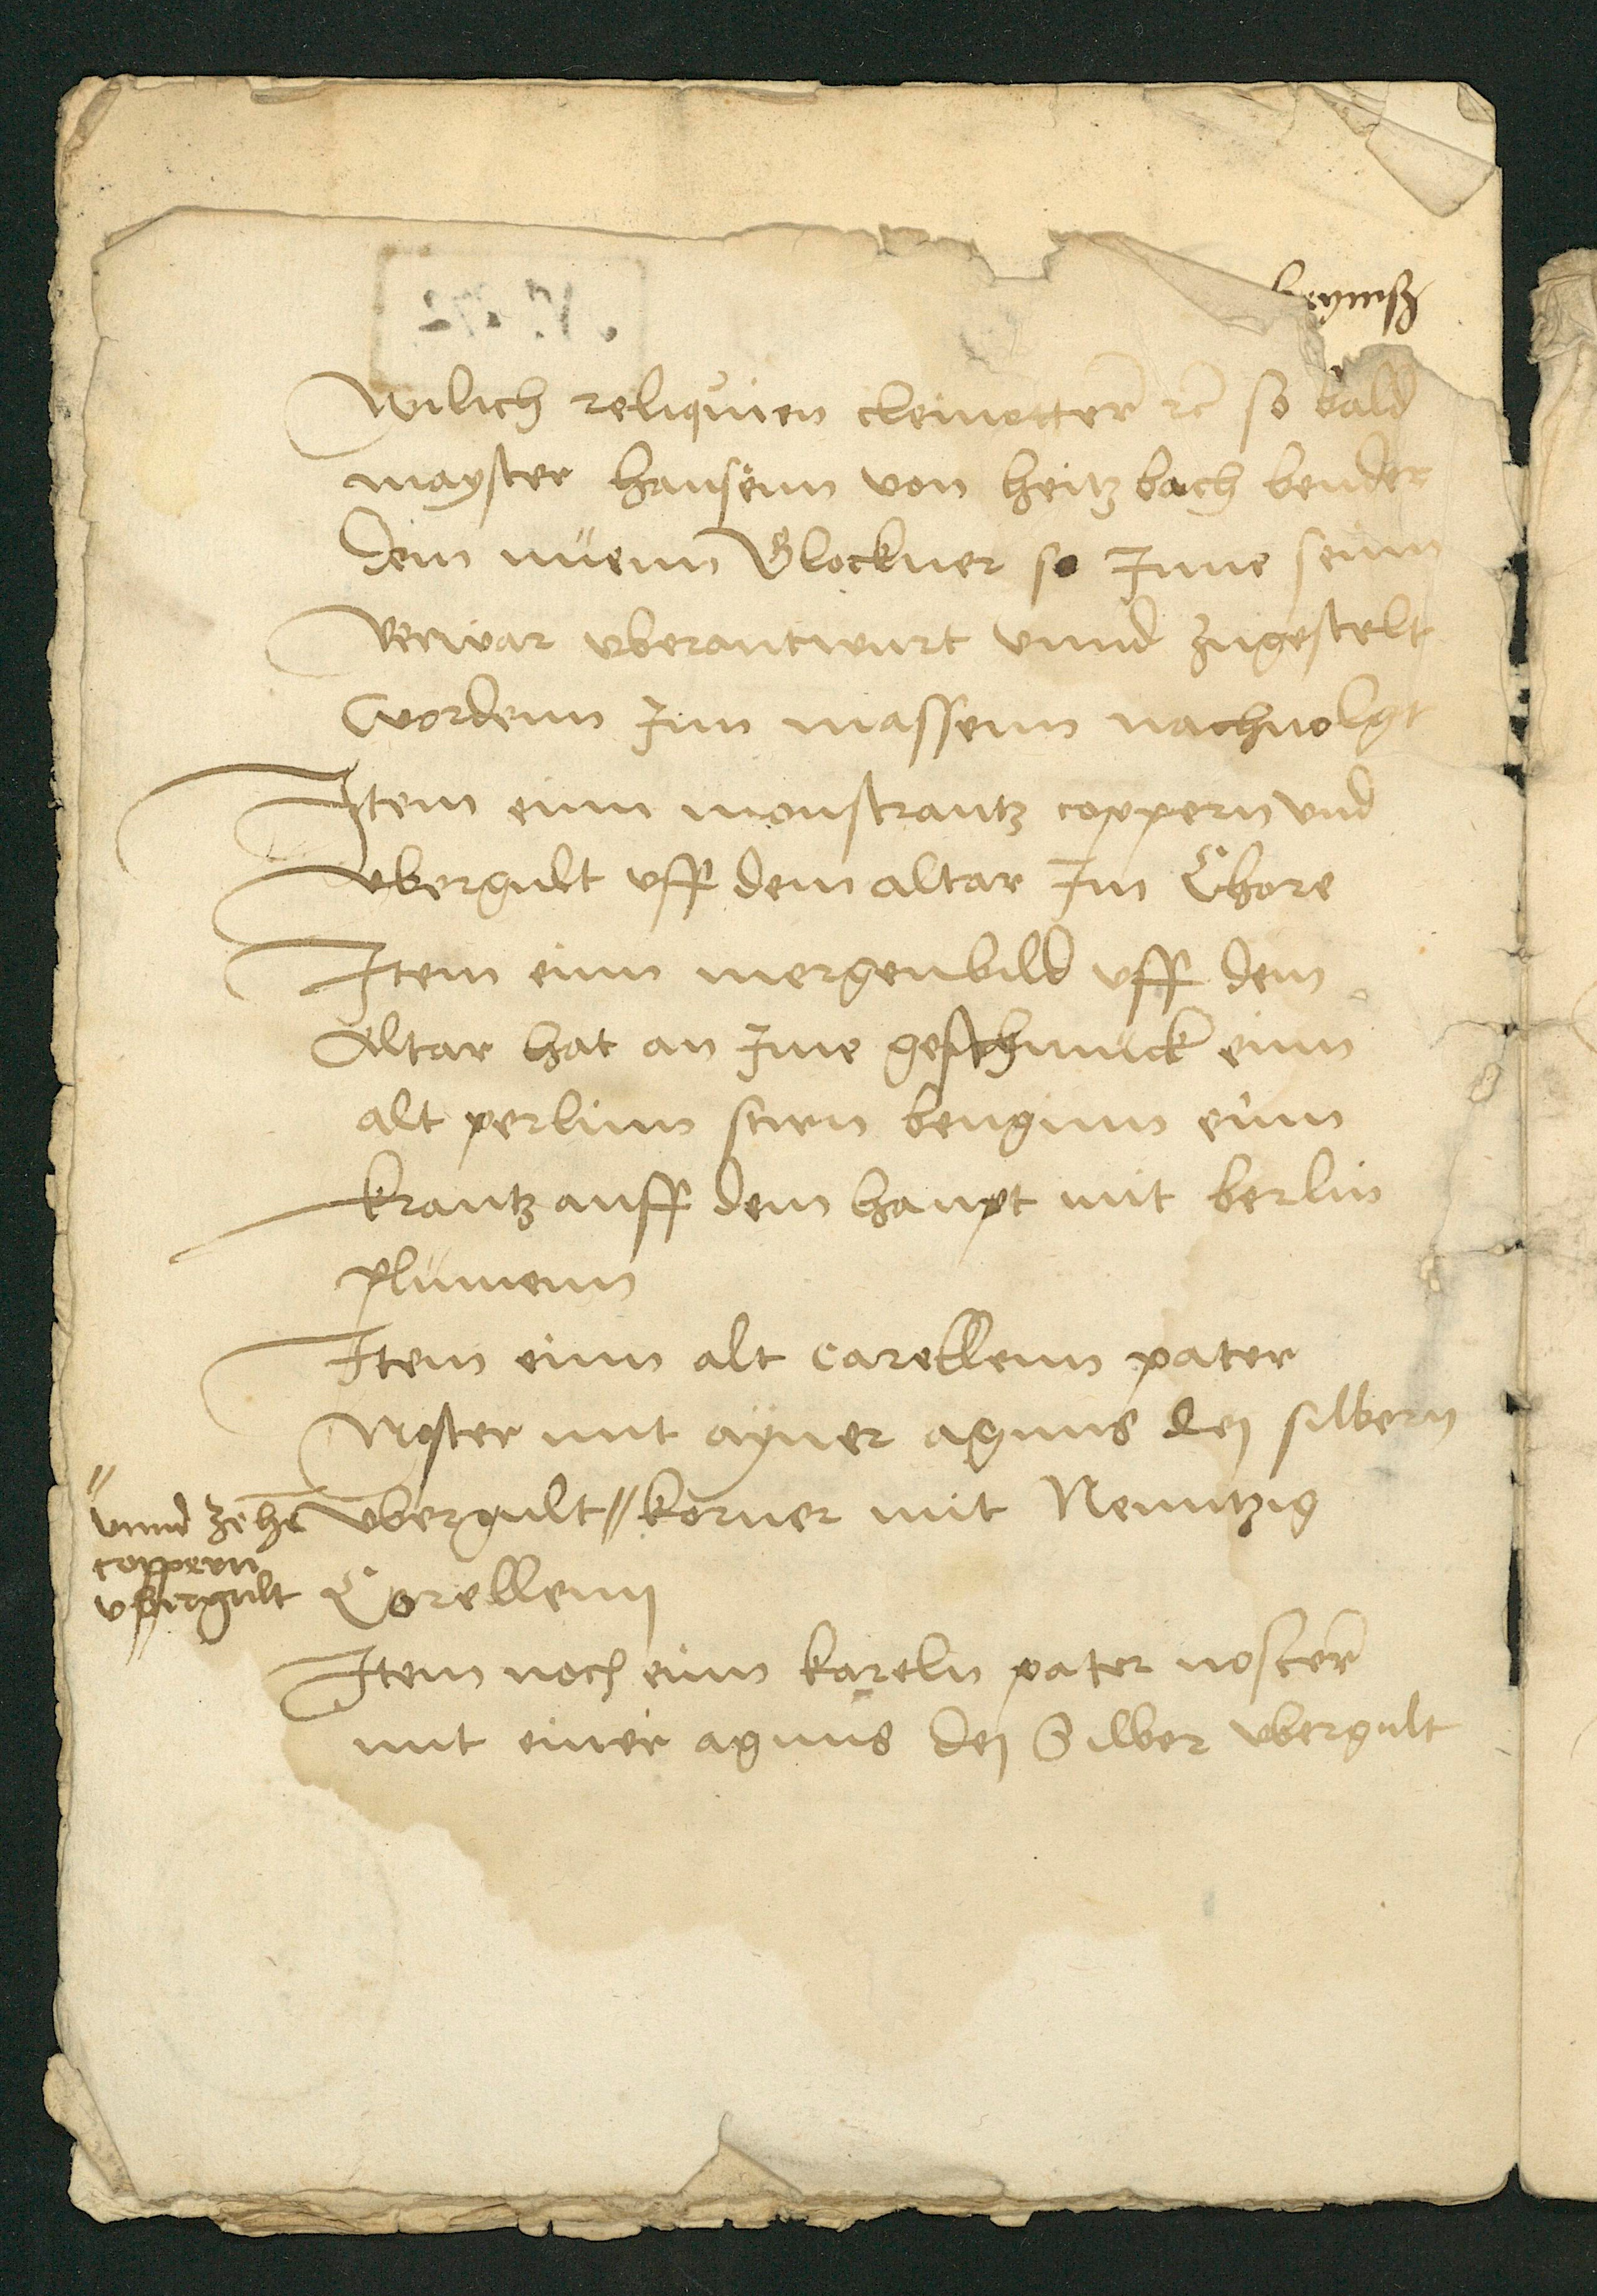 Wilich reliquien cleinotter rc so bald
mayster Hansenn von Heitzbach bender
dem nuenn Glockner so Inne seinn
verwar vberantwurt vnnd zugestelt
wordenn Inn massenn nachuolgt
Item einn monstrantz coppern vnd
vbergult vff dem altar Im Chore
Item einn mergenbild vff dem
Altar hat an Ime geschmuck einn
alt perlinn stirn bengnnn einn
krantz auff dem haupt mit berlin
plumenn
Item einn alt carellenn pater
Noster mit ayner agnus dej silbern
vbergult // korner mit Neuntzig
Corellenn
// vnnd zehe
coppern
vbergult
Item noch einn kareln pater noster
mit einer agnus dej Silber vbergult